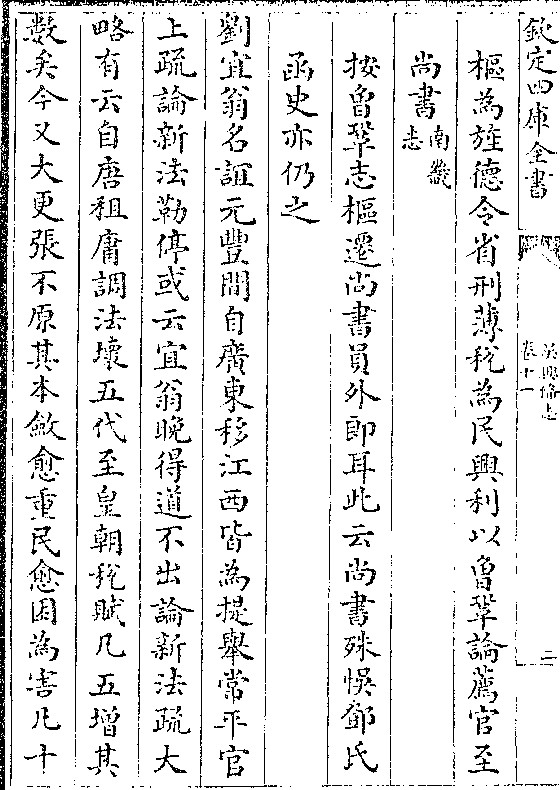 欽定四庫全書
卷十一
二
樞為旌德令省刑薄稅為民興利以曾鞏論薦官至
尚書南畿志
按曾鞏志樞遷尚書員外郎耳此云尚書殊悞鄧氏
函史亦仍之
劉宜翁名誼元豐間自廣東移江西皆為提舉常平官
上疏論新法勒停或云宜翁晚得道不出論新法疏大
略有云自唐租庸調法壞五代至皇朝稅賦凡五增其
數矣今又大更張不原其本斂愈重民愈困為害凡十